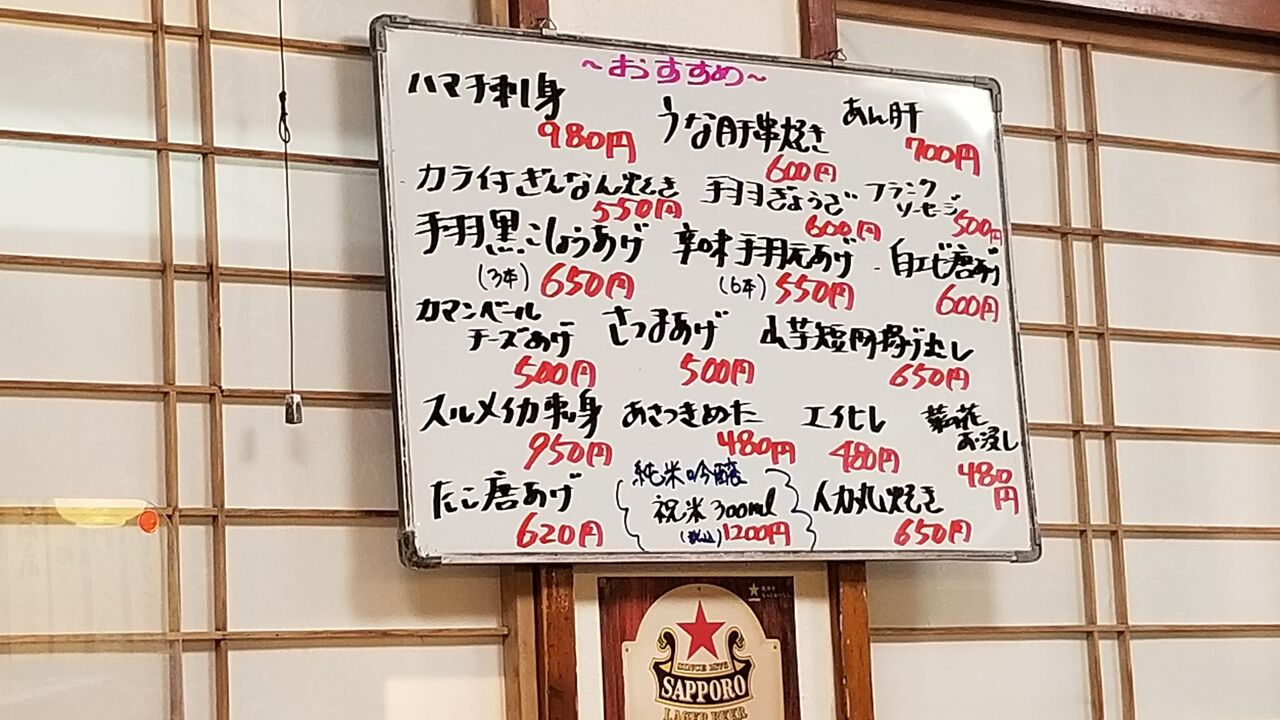 ~おすすめ~
ハマチ刺身
980円
うな肝串焼き
600円
あん肝
700円
カラ付ぎんなん焼き
550円
手羽ぎょうざ
600円
フランク
ソーセージ
500円
手羽黒こしょうあげ
(3本) 650円
辛味手羽元あげ
(6本) 550円
白エビ唐あげ
600円
カマンベール
チーズあげ
500円
さつまあげ
500円
山芋短冊揚げ出し
650円
スルメイカ刺身
950円
あさつきぬた
480円
エイヒレ
480円
菜の花
お浸し
480
円
たこ唐あげ
620円
純米吟醸
祝米300ml
(税込)1200円
丸焼き
650円
SINCE 1876
SAPPORO
LAGER BEER